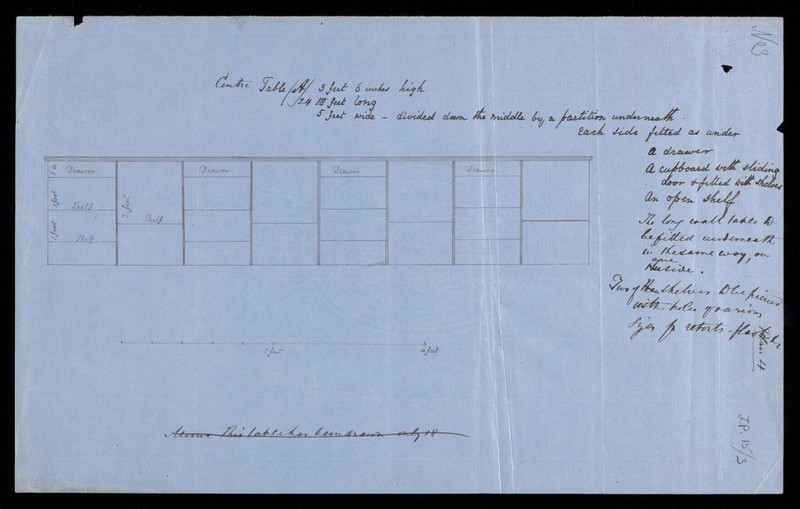 N 23
Centre Table /A/ 3 feet 6 inches high
24 18 feet long
5 feet wide - divided down the middle by a partition underneath.
Each side fitted as under
a drawer
A cupboard with sliding
door & fitted with shelves
An open shelf
The long wall table D
be fitted underneath
in the same way, on
one side.
Two of the shelves to be pierced
with holes of various
sizes for retorts - flasks &c
Drawer
Drawer
Drawer
Drawer
6 in
1 foot
Shelf
2 feet
Shelf
1 foot
Shelf
5 feet
10 feet
This table has been drawn only 18
I.P. 15/3